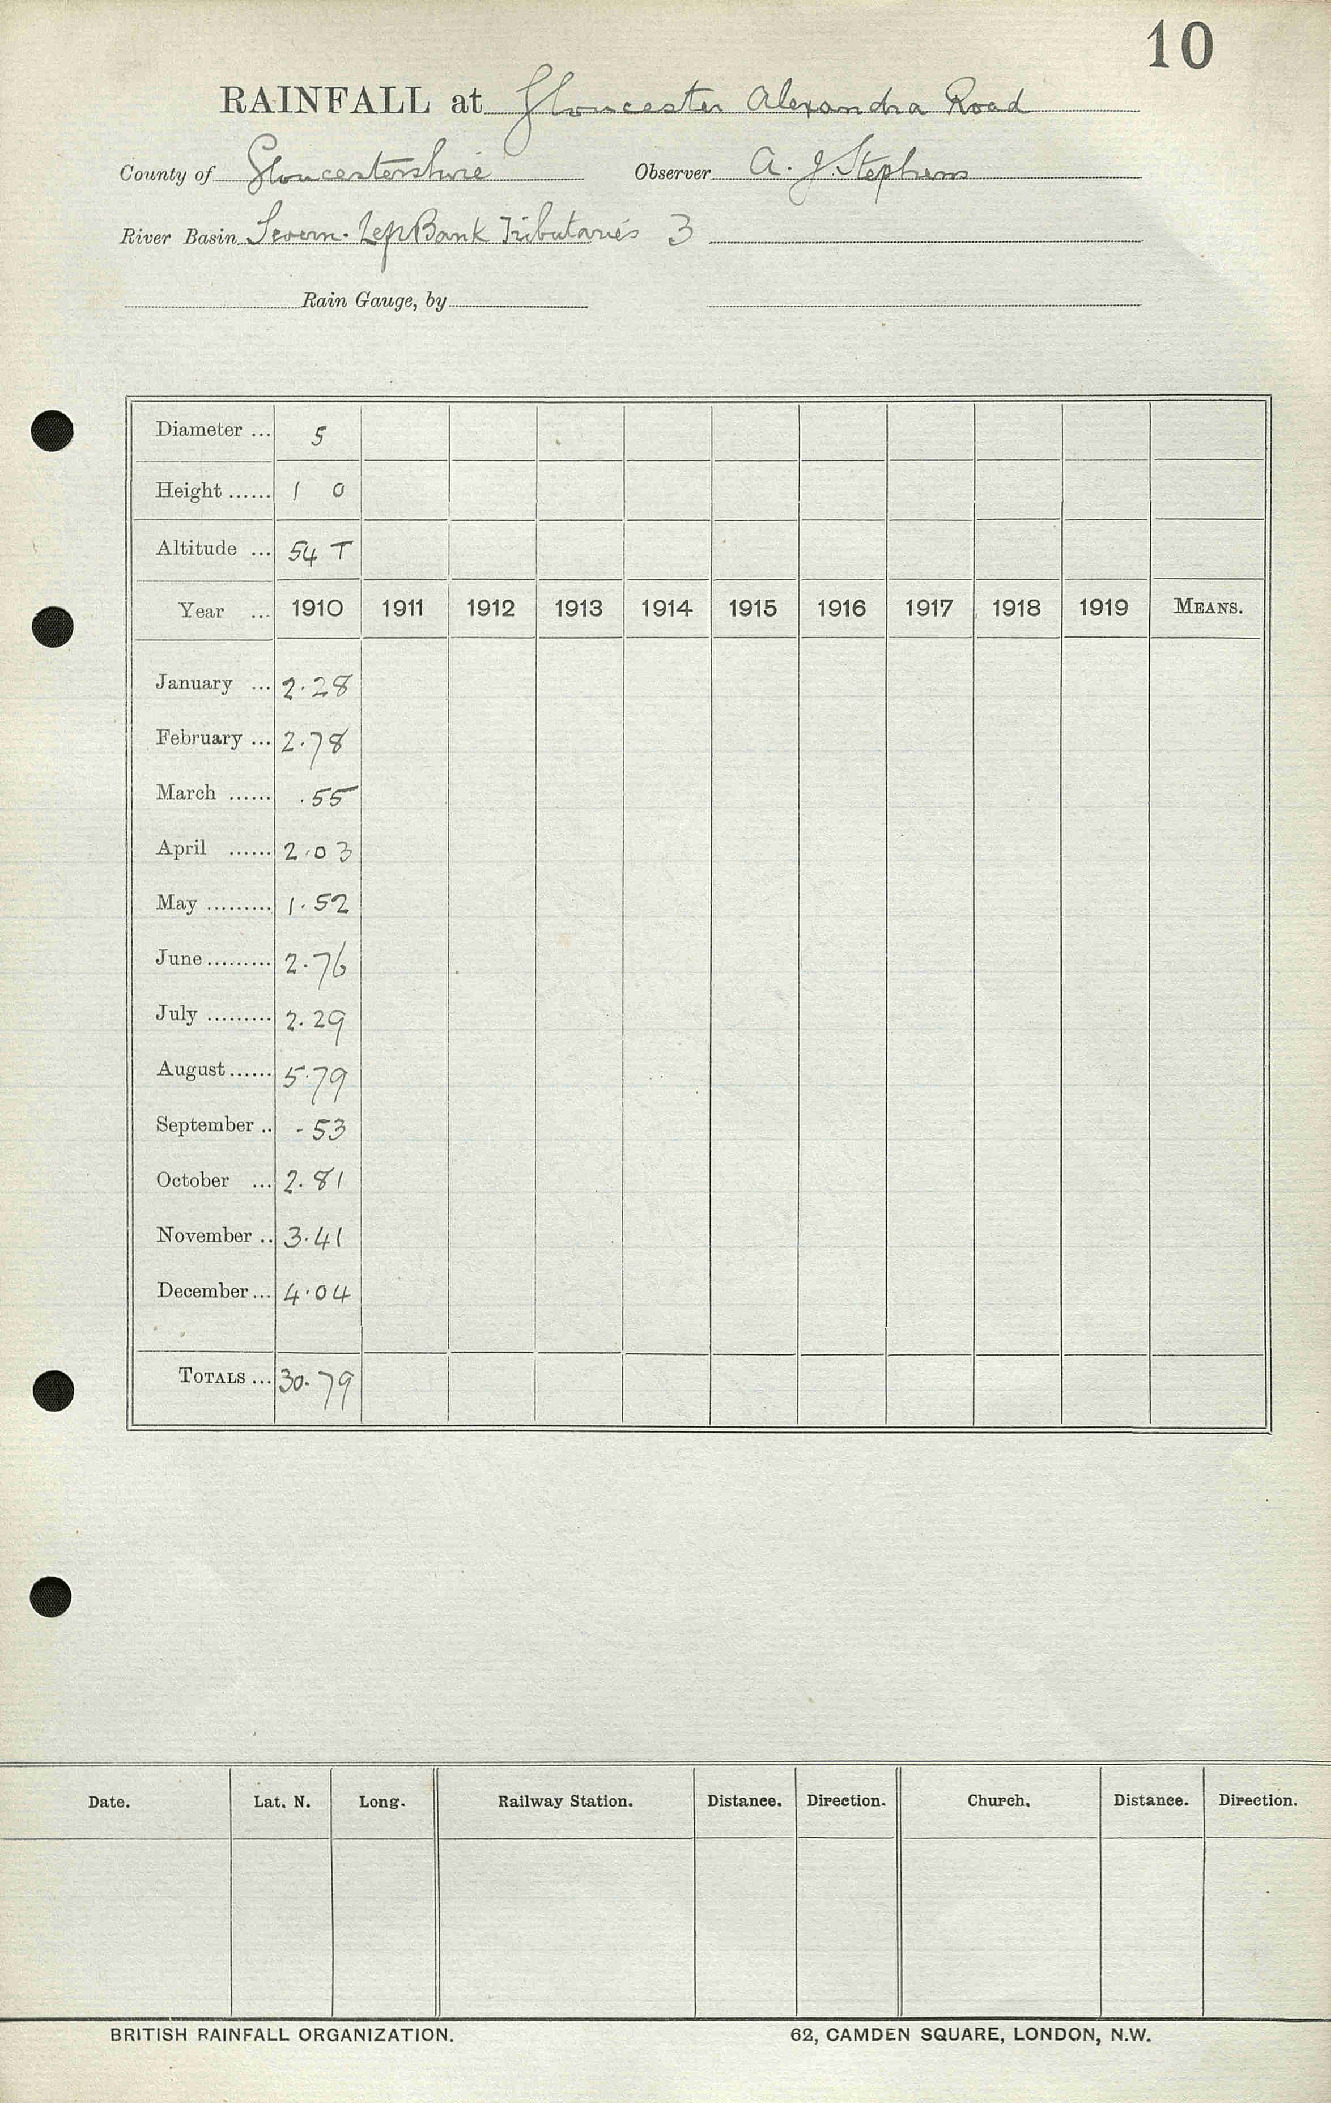 10
RAINFALL at Gloucester Alexandra Road
County of Gloucestershire Observer A. J. Stephens
River Basin Severn. Left Bank Tributaries 3
Rain Gauge, by
Diameter ... 5
Height ...... 1 0
Altitude ... 54 T
Year ... 1910 1911 1912 1913 1914 1915 1916 1917 1918 1919 MEANS.
January ... 2.28
February ... 2.78
March ...... .55
April ...... 2.03
May ......... 1.52
June ......... 2.76
July ......... 2.29
August ...... 5.79
September .. .53
October ... 2.81
November .. 3.41
December ... 4.04
TOTALS ... 30.79
Date. Lat. N. Long. Railway Station. Distance. Direction. Church. Distance. Direction.
BRITISH RAINFALL ORGANIZATION. 62, CAMDEN SQUARE, LONDON, N.W.